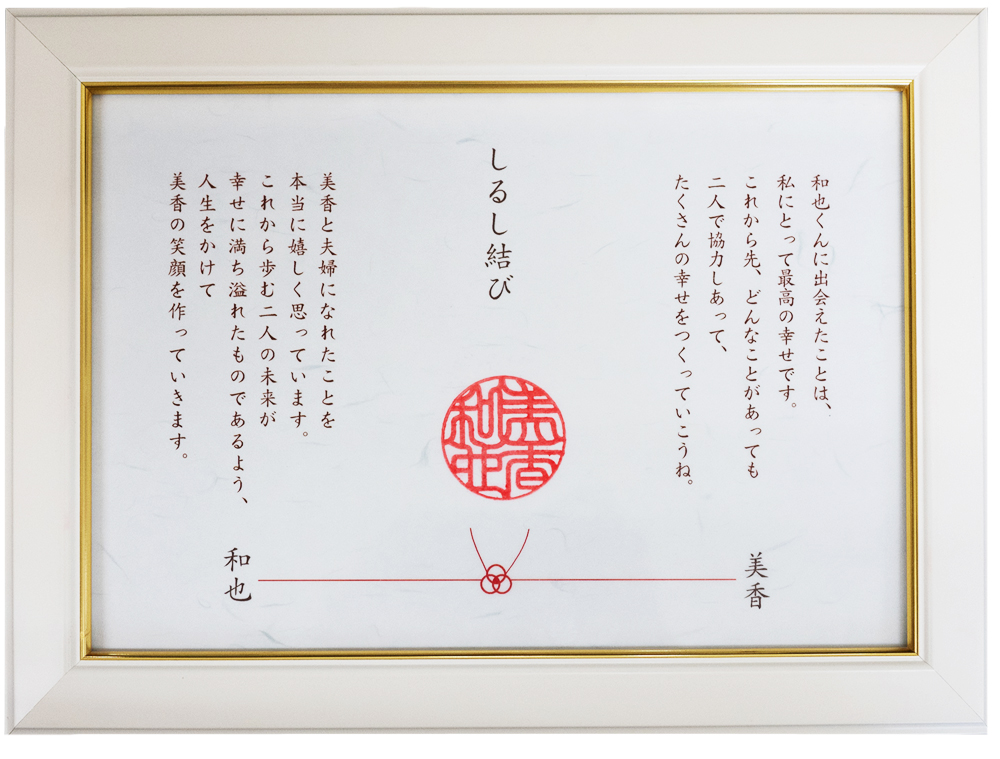 和也くんに出会えたことは、
私にとって最高の幸せです。
これから先、どんなことがあっても
二人で協力しあって、
たくさんの幸せをつくっていこうね。
美香
しるし結び
美香
和也
美香と夫婦になれたことを
本当に嬉しく思っています。
これから歩む二人の未来が
幸せに満ち溢れたものであるよう、
人生をかけて
美香の笑顔を作っていきます。
和也